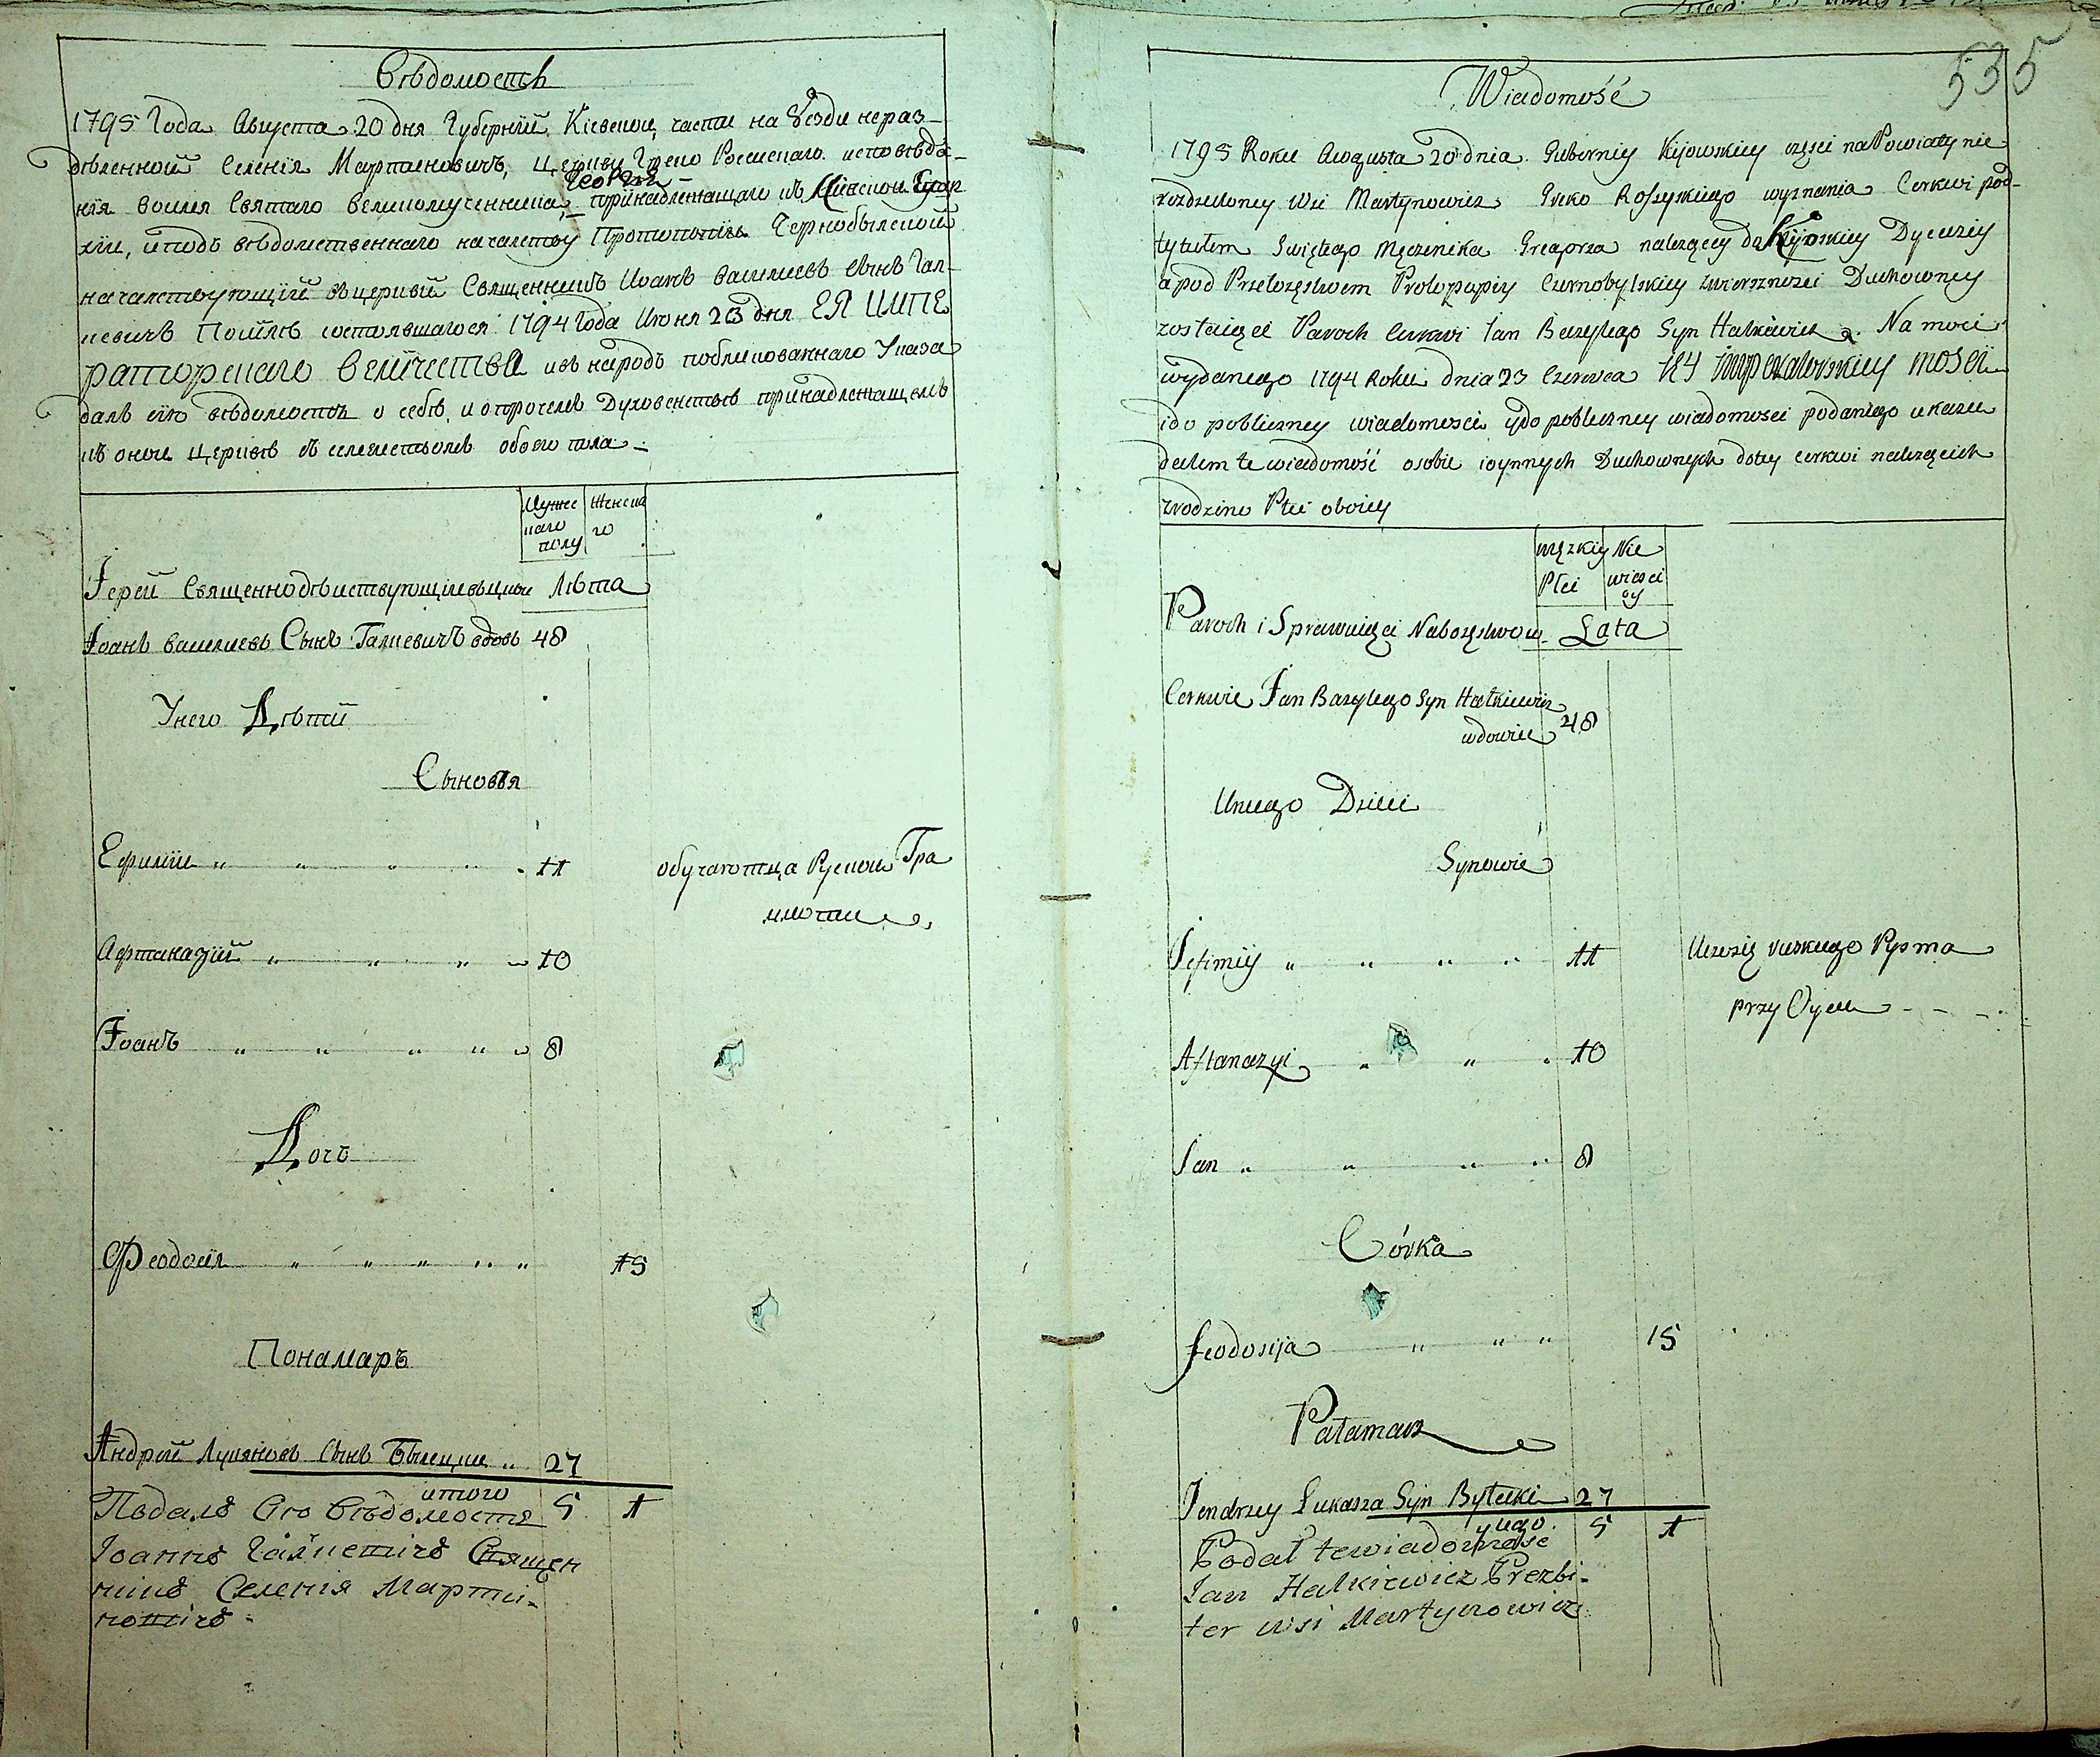 Вѣдомость
1795 Года Августа 20 дня Губерніи Кіевской части на Уезди нераз-
дѣленной Селенія Мартиновичъ, Церкви Греко Россискаго исповѣда-
Георгія
нія воимя Святаго Великомученника, принадлежащаго къ Кіевской Епар
хіи, иподъ вѣдомственнаго началству Протопопіи Чернобылской
началствующій въцеркви Священникъ Иоанъ Василиевъ сынъ Гал-
кевичъ Посилѣ состоявшагося 1794 Года Июня 23 дня ЕЯ ИМПЕ
раторскаго Величества въ народъ публикованнаго Указа
далъ сію вѣдомость о себѣ, и опрочемъ Духовенствѣ принадлежащемъ
къ оной Церквѣ съ семействомъ обоего пола
Мужес
каго
полу
Женска
го
Іерей Священнодѣйствующій въцеркви Лѣта
Іоанъ василиевъ Сынъ Галкевичъ вдовъ 48
Унего Дѣтій
Сыновья
Ефимій " " " " 11 обучаютца Руской Гра
моти
Афтаназій " " " 10
Іоанъ " " " " 8
Дочъ
Феодосія " " " " " 15
Понамаръ
Андрей Лукяновъ Сынъ Билецки " 27
итого 5 1
Подалъ Сію Вѣдомостъ
Іоаннъ Галкевичъ Священ
никъ Селенія Марти-
новичъ
535
Wiadomość
1795 Roku Augusta 20 dnia Guberniy Kijowskiey części naPowiaty nie
rozdzieloney Wsi Martynowicz Greko Rossyskiego wyznania Cerkwi pod-
tytułem Swiętego Męczenika Gregorza należący do Kijowskiey Dyeceziy
apod Przełozęstwem Protopopiy Czernobylskiey zwierszności Duchowney
zostaiący Paroch Cerkwi Jan Bazylego Syn Halkiewicz. Na moci
wydanego 1794 Roku dnia 23 Czerwca IEY Imperatorskiey mosci
ido publiczney wiadomosci ydo publiczney wiadomosci podanego ukazu
dałem te wiadomość osobie iynnych Duchownych dotey cerkwi należącich
zrodzino Płci oboiey
męzkiy
Płci
Nie
wiesci
oy
Paroch i Sprawuięci Nabozęstwo w Lata
Cerkwie Jan Bazylego Syn Halkiewicz
wdowiec 48
Uniego Dzieci
Synowie
Jefimiy " " " " 11 Uczęsię ruskiego Pysma
przy Oycu
Aftanazyi " " " 10
Jan " " " " 8
Córka
Feodosija " " " 15
Patamarz
Jendrzey Łukasza Syn Bylecki 27
ytego 5 1
Podał tewiadomosc
Jan Halkiewicz Prezbi-
ter wsi Martynowicz